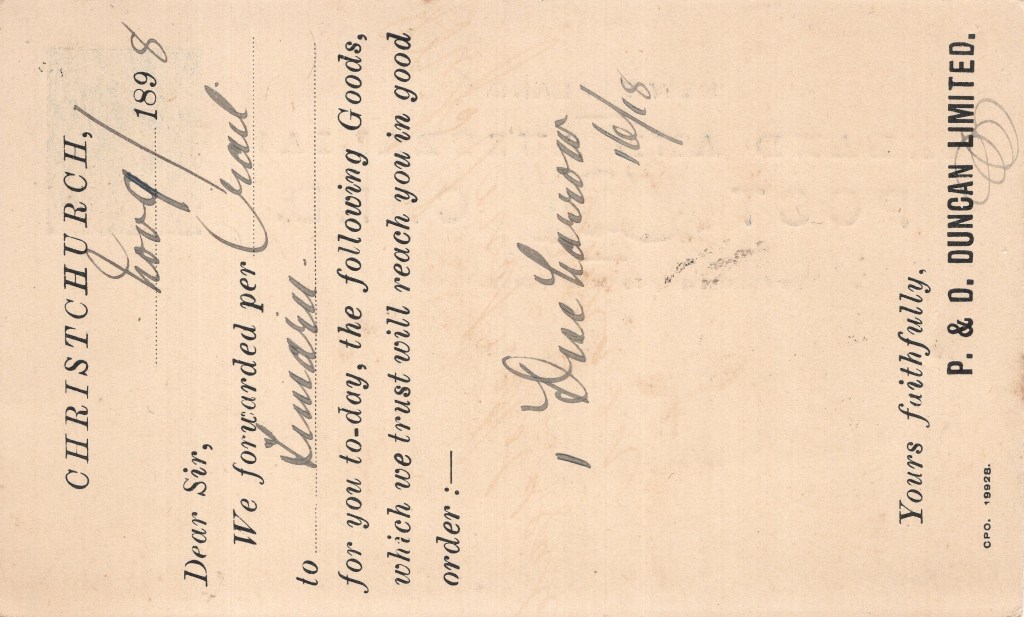 CHRISTCHURCH,
Nov 9/ 1898
Dear Sir,
We forwarded per Rail
to Timaru.
for you to-day, the following Goods,
which we trust will reach you in good
order:—
1 Disc Harrow 16/18
Yours faithfully,
P. & D. DUNCAN LIMITED.
CPO. 19928.